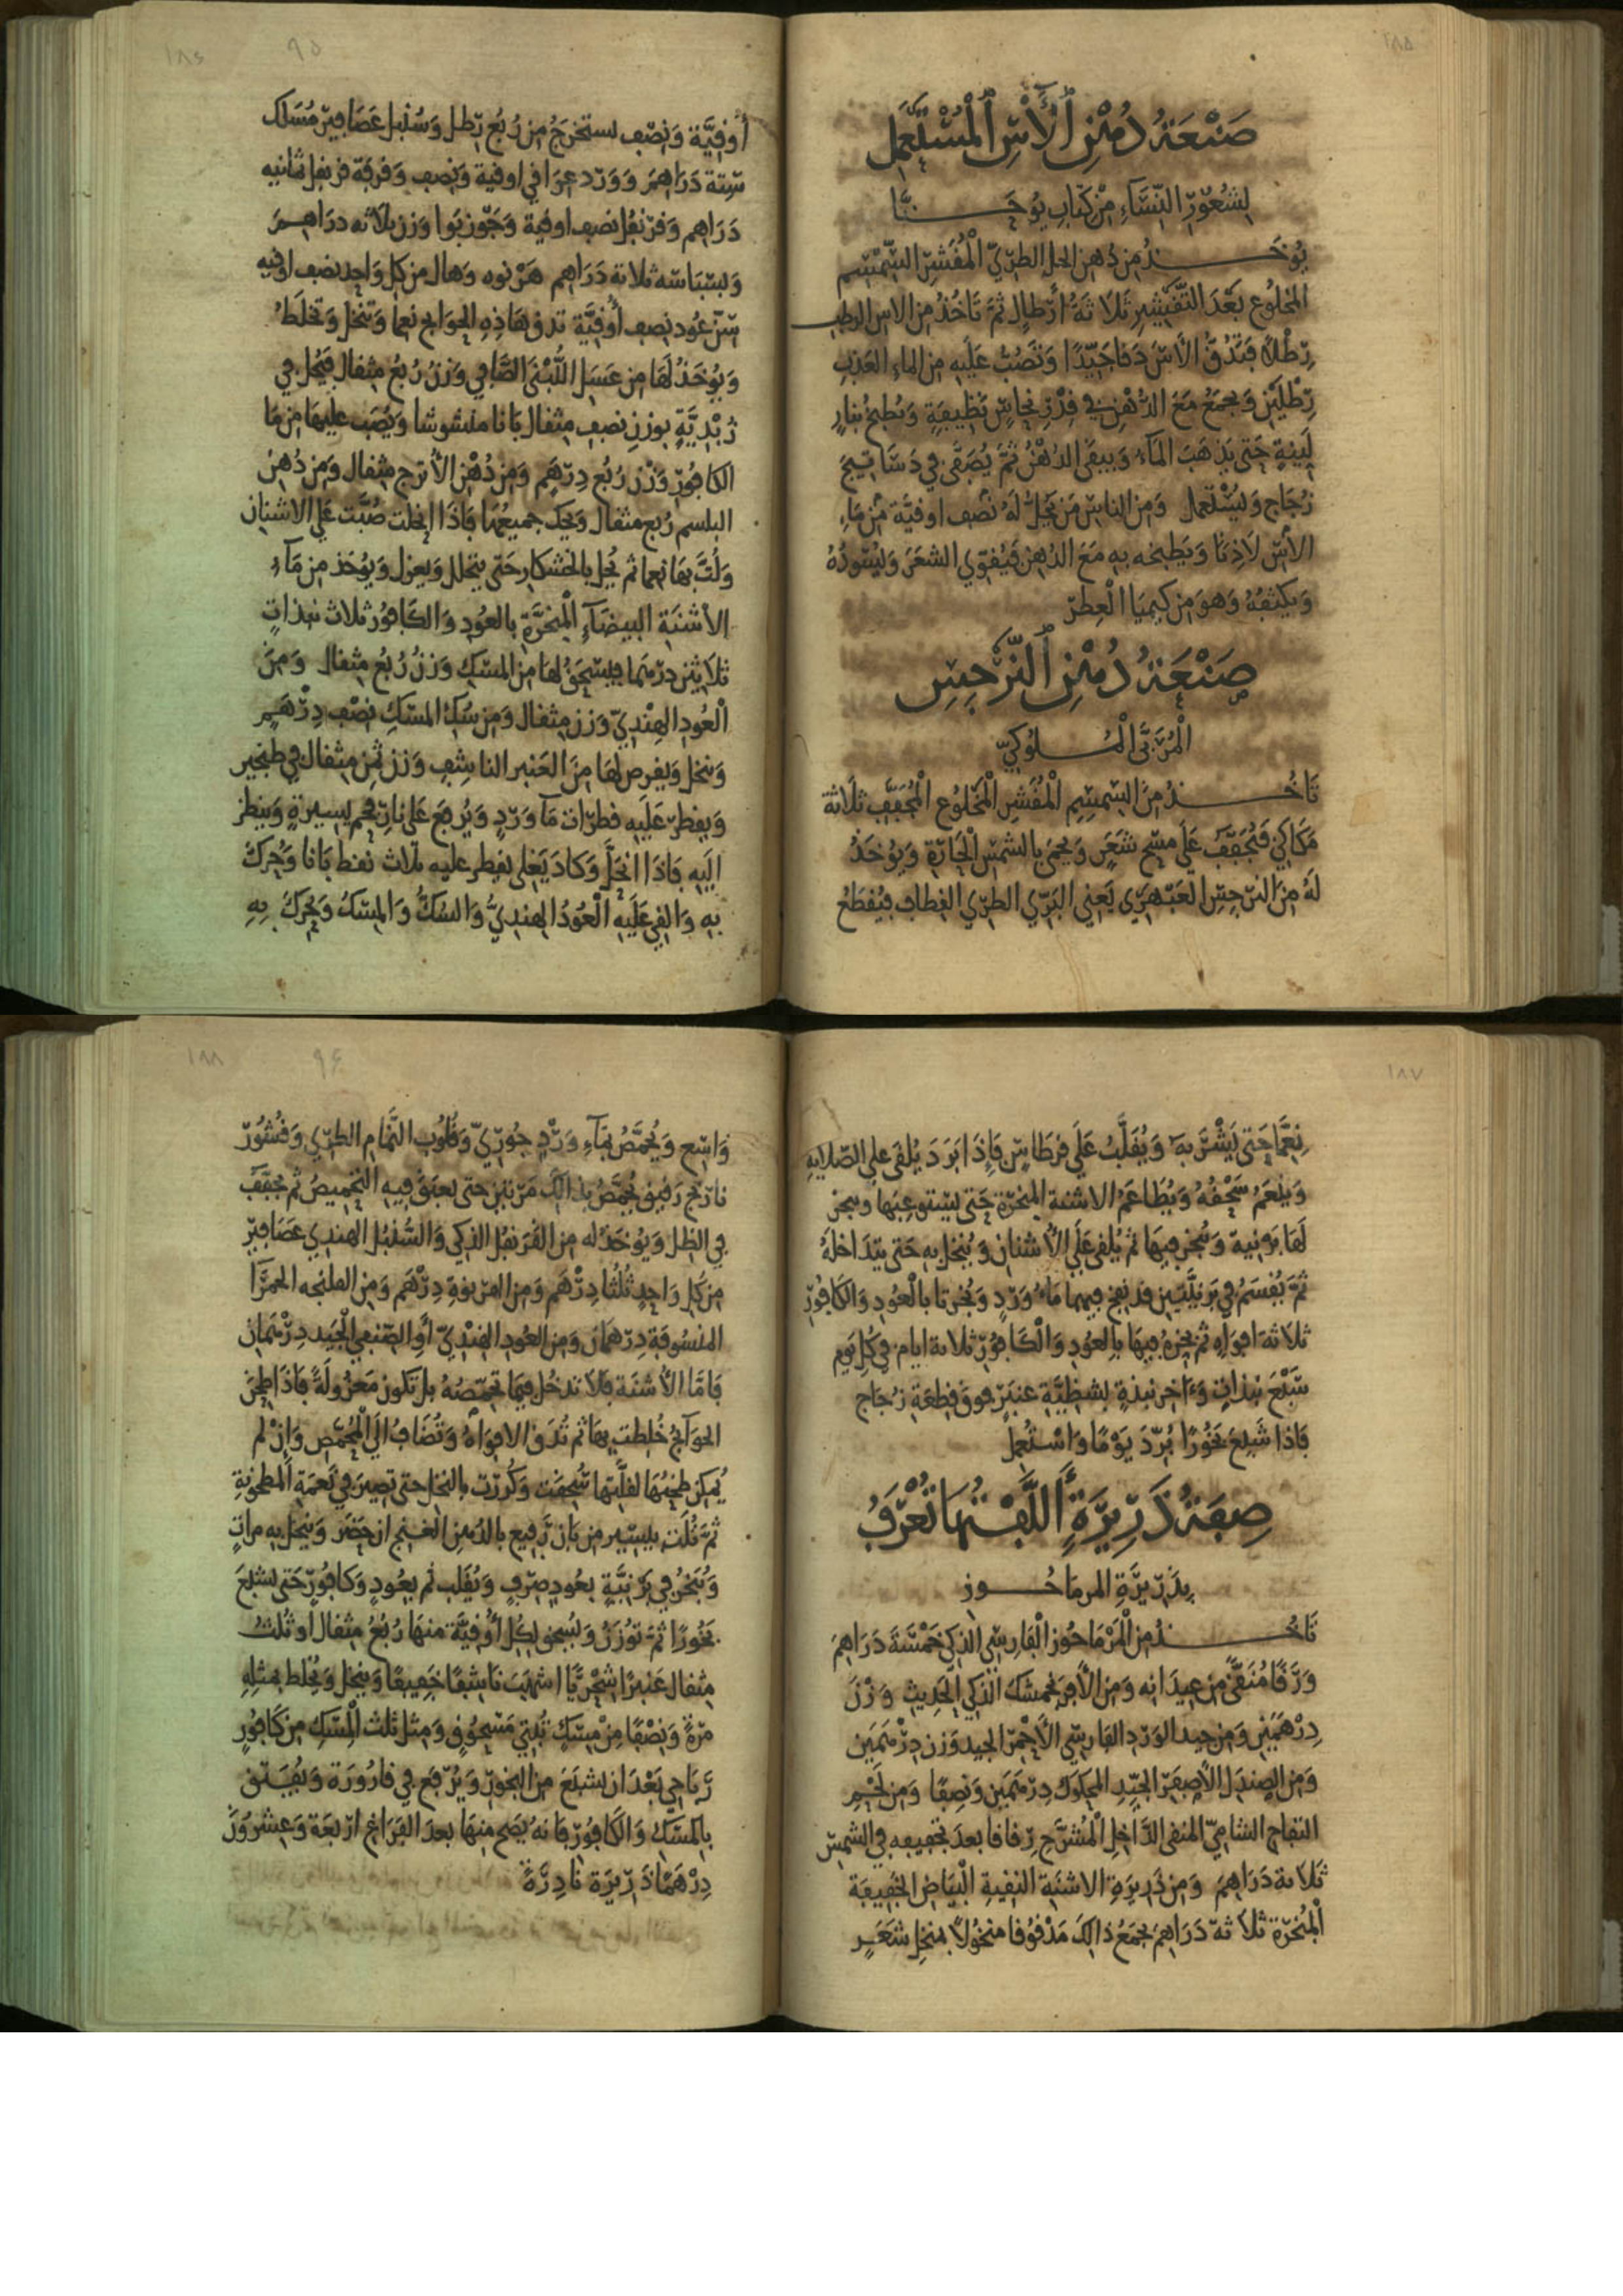 ١٨٥
صَنْعَةُ دُهْنِ ٱلْآسِ ٱلْمُسْتَعْمَلِ
لِشُعُورِ النِّسَاءِ مِنْ كِتَابِ يُوحَنَّا
يُوخَذُ مِن دُهن الحل الطريّ الْمُقَشَّرِ السِّمْسِم
المخلوع بَعْدَ التَّقْشِيرِ ثَلَاثَةُ أَرْطَالٍ ثُمَّ تَاخُذُ مِنَ الاس الرطب
رِطْلًا فَتَدُقُّ الْآسَ دَقًا جَيِّدًا وَتَصُبُّ عَلَيهِ مِنَ الماء العَذب
رِطْلَيْنِ وَيجمَعُ مَعَ الدُّهْنِ فِي قِدْرِ نحاسٍ نَظِيفَةٍ وَيُطبخُ بنارٍ
لَيِّنَةٍ حَتى يَذهَبَ المَآءُ وَيَبقَى الدهْنُ ثُمَّ يُصَفَّى فِي دَسَاتيج
زُجَاج وَيُسْتَعمل وَمِنَ الناسِ مَن يَحُلُّ لَهُ نصف اوقيَّة مِن مَاءِ
الآس لَاذنًا وَيَطبخه بِهِ مَعَ الدُهنِ فَيُقَوِّي الشعَرَ وَيُسَوِّدُهُ
وَيكثفُهُ وَهوَ مِن كيميَا الْعِطرِ
صَنْعَةُ دُهْنِ ٱلنَّرْجِسِ
الْمُرَبَّى الْمُلُوكِيِّ
تَاخُذُ مِنَ السِّمسِمِ الْمُقَشَّرِ الْمَخلُوعِ الْمُجَفَّفِ ثَلَاثة
مَكَاكِي فَتُجَفَّفُ عَلَى مسْحِ شَعَرٍ وَيحمَى بِالشمسِ الْحَارَّةِ وَيُوخَذُ
لَهُ مِنَ النرجِسِ العَبْهَرِي يَعْنِي البَرِّي الطَرِي القِطَافِ فَيُقطَعُ
١٨٦ ٩٥
أُوقِيَّة وَنِصْف يستخرَجُ مِن رُبُعِ رَطل وَسُنبل عَصَافِير مُسَلَك
سِتة دَرَاهِمَ وَوَرد عِرَاقي اوقية وَنِصف وَقرفة قرنفل ثمانيه
دَرَاهِم وَقرنفُل نصف اوقية وَجَوْزبَوا وَزن ثلاثه دراهِمَ
وَبسْبَاسَه ثلاثة دَرَاهِم هَرْنوه وَهال مِن كلِ وَاحِدٍ نصف اوقيه
عُود نِصف أُوقِيَّة تدق هَاذِهِ الحوايج نعما وَتنخل وَتخلط
وَيُوخَذُ لَهَا مِن عَسَلِ اللُّبْنَى الصَّافِي وَزنُ رُبُعِ مِثقَال فَيُحَل فِي
زُبْدِيَّةٍ بوزنِ نصف مِثقال بَانا منشوشا وَيُصَب عليهَا مِن مَا
الكافُورِ وَزْن رُبُعِ دِرْهَمٍ وَمِن دُهْنِ الأُترج مثقال وَمِن دُهن
البلسم رُبع مثقال وَيحَك جميعُهَا فَاذَا انحلت صُبَّت عَلَى الاشنان
وَلُتَّ بهَا نِعما ثم نُخِل بالخشكار حَتى يتخلل وَيعزل وَيُوخَذ مِن مَآء
الأشْنَةِ البيضَآءِ الْمُبَخَّرَةِ بالعُودِ وَالكَافُورِ ثلاث نبذاتٍ
ثلَاثين درهمًا فيُسْحَقُ لهَا مِنَ المسْكِ وَزنُ رُبُعِ مثقال وَمِنَ
الْعُودِ الهِنْدِيِّ وَزن مثقال وَمِن سُك المسْكِ نِصْف دِرْهَمٍ
وَتنخل وَيقرص لهَا مِنَ العَنبر الناشِفِ وَزن ثُمنِ مِثقال في طنجير
وَيقطر عَلَيهِ قطرات مَآ وَرْدٍ وَيُرفعَ عَلَى نَارِ فحمٍ يسيرةٍ وَينظر
اليهِ فَاذَا انحَلَّ وَكادَ يَغلي يقطر عليه ثلاث نقط بَانا وَحُرك
بِهِ وَالقي عَلَيهِ الْعُودُ الهنديُّ وَالسُكُّ وَالمِسْكُ وَيُحَرك بِهِ
١٨٧
نِعمَّا حَتى يَشْرَبَهُ وَيُقَلَّبُ عَلَى قرطَاسٍ فَإِذَا بَرَدَ يُلقَى عَلَى الصّلايه
وَيُنعَمُ سَحْقُهُ وَيُطَاعَمُ الاشنة المبخرَة حَتى يَسْتوعِبَهَا ويبخر
لَهَا بَرنية وَتُبخر فِيهَا ثم يُلقى عَلَى الأُشنانِ وَيُنخل بِهِ حَتى يتدَاخلَهُ
ثمَّ يُقسَمُ في بَرنِيَّتَينِ قد نضح فيهما مَاءُ وَرْدٍ وَبُخرتا بالْعُودِ وَالكَافُورِ
ثلاثة افوَاهٍ ثم يُبخرُ فيهَا بِالعُودِ وَالْكَافُورِ ثلاثة ايام في كُلِ يَوم
سَبْعَ نبذاتٍ وَءَاخر نبذةٍ بشظِيَّةِ عنبَر فوقَ قِطعَة زُجَاجٍ
فَاذا شَبِعَ بَخُورًا بُرِّدَ يَوْمًا وَاسْتُعْمِلَ
صِفَةُ ذَرِيرَةٍ أَلَّفْتُهَا تُعْرَفُ
بِذَرِيرَةِ المرمَاحُوز
تَاخُذُ مِنَ الْمَرْمَاحُوزِ الْفَارِسِي الذكي خَمْسَةَ دَرَاهِمَ
وَرَقًا مُنَقَّى مِن عِيدَانِه وَمِنَ الأَفرَنجمشك الذكي الحَدِيثِ وَزْنَ
دِرْهَمَيْنِ وَمِن جيد الوَرْدِ الفَارِسِي الأَحْمَرِ الجيد وَزن دِرْهَمَين
وَمِنَ الصندَلِ الأَصفَرِ الجَيِّدِ المحكوك دِرهَمَينِ وَنِصفًا وَمِن لَحْمِ
التفاحِ الشَامِيِّ المنقى الدَّاخِل الْمُشَرَّح رِقاقا بعدَ تجفيفه في الشمسِ
ثَلَاثة دَرَاهِمَ وَمِن ذَرِيرَةِ الاشنَةِ النقيةِ الْبَيَاض الخفيفَة
الْمُبَخَّرَة ثَلَاثة دَرَاهِمَ يجمَعُ ذالِكَ مَدْقُوقا منخُولًا بمنخل شعَرٍ
١٨٨ ٩٦
وَاسِعٍ وَيُحَمَّصُ بمَآءِ وَرْدٍ جُورِيّ وَقُلُوب النَّمَّامِ الطرِّي وَقُشُور
نارنج رَقِيق يُحَمَّصُ بِذَالِكَ مَرَّتين حَتى يعبَقَ فِيهِ التحمِيصُ ثم يجفَّف
في الظل وَيُوخَذُ له مِنَ القَرَنفُل الذكي وَالسُّنبُل الهندي عَصَافير
مِن كُلِ وَاحِدٍ ثُلُثَا دِرْهَمٍ وَمِنَ الهرنوة دِرْهَم وَمِنَ الفلنجه الحمرَا
دِرْهَمَان وَمِنَ العودِ الهِنْدِيّ أَوِ الصَّنفي الجَيد دِرْهَمان
فَامَّا الأُشنَة فَلَا تدخُل فِيمَا تحمّصُهُ بل تكون مَعْزُولَةً فَاذَا طُحِن
الحوَآئجُ خُلِطت بِهَا ثم تُدَق الافوَاهُ وَتُضَافُ الَى الْمُحَمَّصِ وَإِنْ لم
يُمكِن طحنُهَا لقلّتِهَا سُحِقَت وَكُرِّرَت بالنخل حَتى تصِيرَ في نَعمَةِ المطحُونةِ
ثمَّ تُلَت بيسِير مِن بَان رَّفِيعٍ بالدهنِ الغنج ان حَضَرَ وَيُنخَل بِهِ مرَاتٍ
وَتُبَخَّرُ فِي بَرْنِيَّةٍ بِعُودٍ صِرفٍ وَيُقَلب ثم بِعُودٍ وَكافُورٍ حَتى تشبَعَ
بَخُورًا ثمَّ تُوزَنُ وَيُسحق لكُل أُوقِيَّة مِنهَا رُبعُ مِثقال اوثُلث
مِثقال عَنبرًا شِحْرِيًّا اشهَبَ نَاشِفًا خَفِيفًا وَينخَل وَيُخلط بمثلِهِ
مرَّةً وَنِصْفًا مِنْ مِسْكٍ تُبَّتِي مَسْحُوقٍ وَمِثل ثلث الْمِسْكِ مِن كَافُورٍ
رَّبَاحِي بَعْدَ ان تشبَعَ مِنَ البخور وَيُرفَع في قارُورَة وَتُفتق
بِالمسكِ وَالكَافُور فَانهُ يصَح مِنهَا بعدَ الفَرَاغ ارْبعَة وَعِشرُونَ
دِرْهَمًا ذَرِيرَة نَادِرَةً